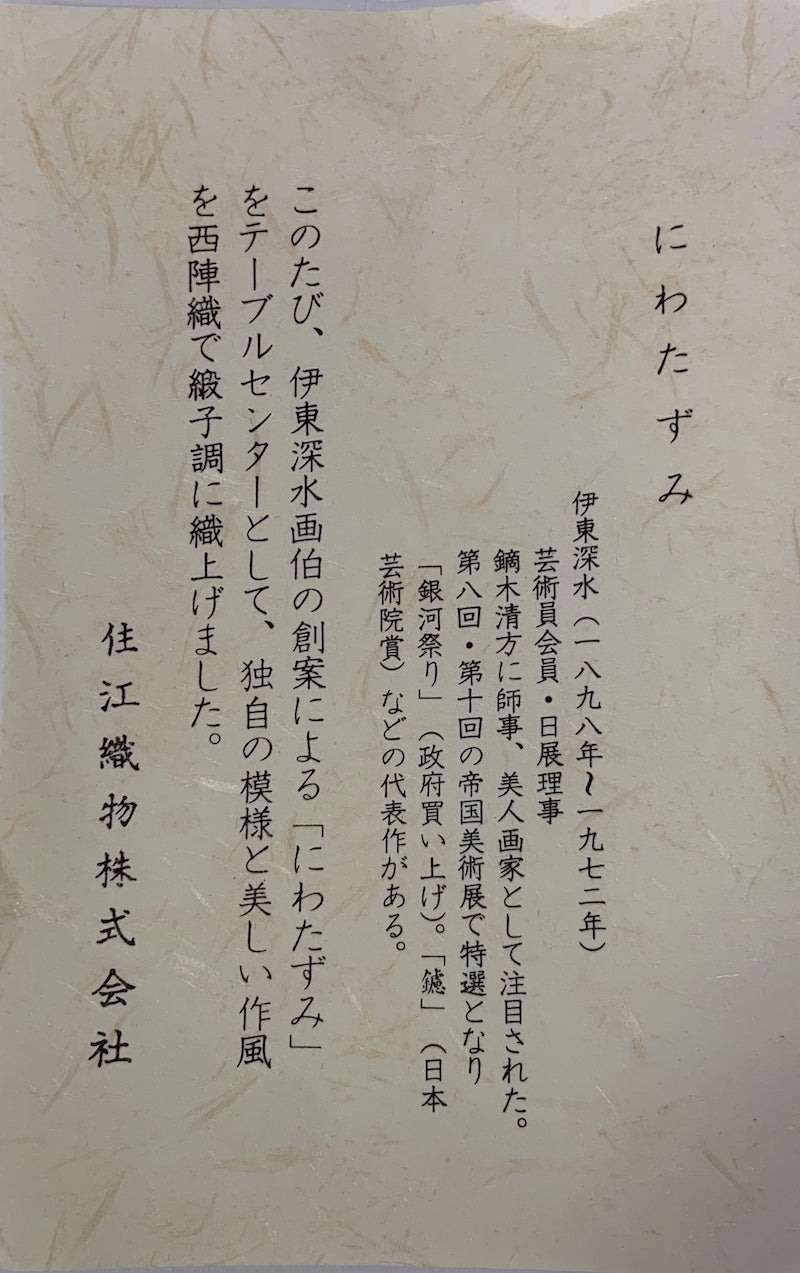 にわたずみ
伊東深水（一八九八年〜一九七二年）
芸術員会員・日展理事
鏑木清方に師事、美人画家として注目された。
第八回・第十回の帝国美術展で特選となり
「銀河祭り」（政府買い上げ）。「鑢」（日本
芸術院賞）などの代表作がある。
このたび、伊東深水画伯の創案による「にわたずみ」
をテーブルセンターとして、独自の模様と美しい作風
を西陣織で緞子調に織上げました。
住江織物株式会社